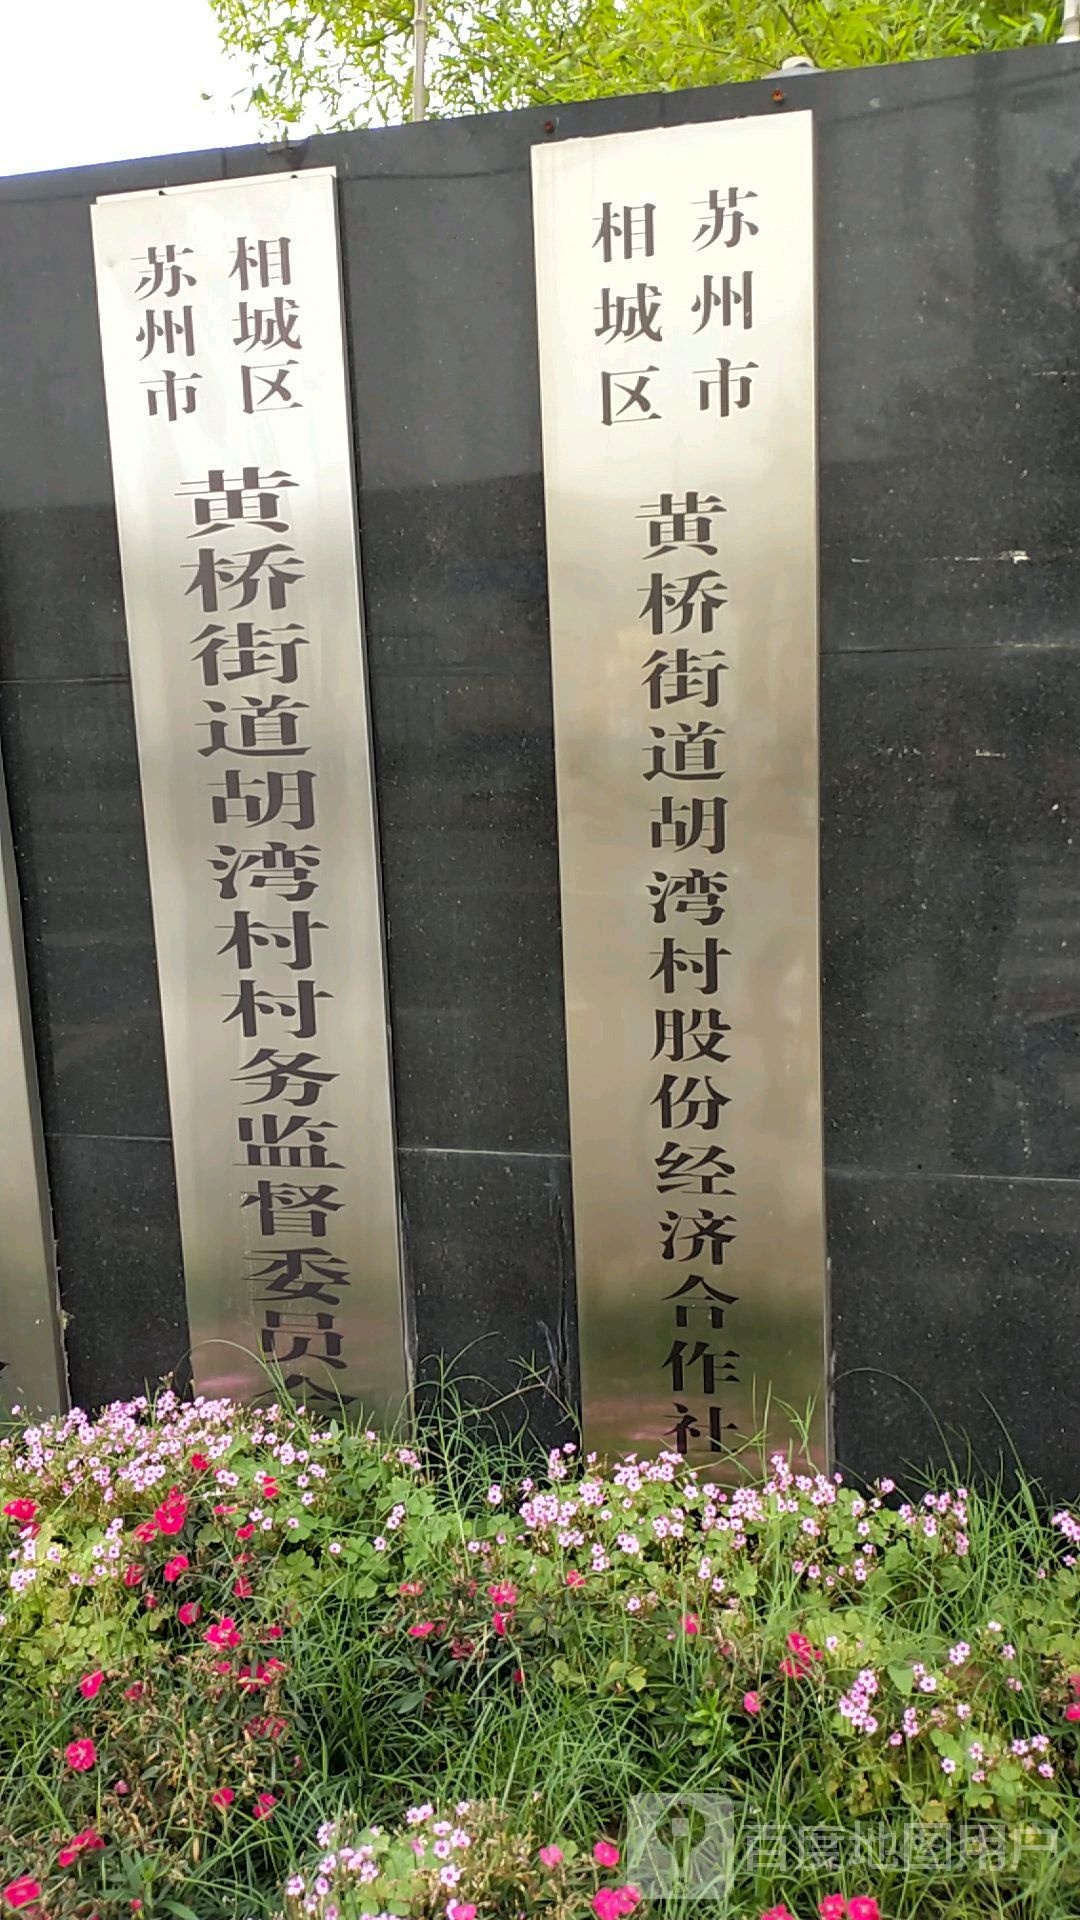 苏州市
相城区
黄桥街道胡湾村股份经济合作社
苏州市
相城区
黄桥街道胡湾村村务监督委员会
百度地图用户